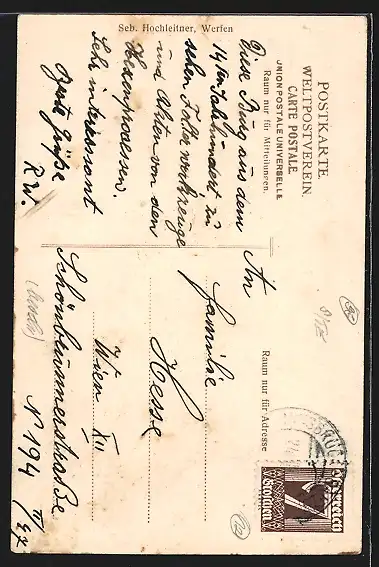 POSTKARTE.
WELTPOSTVEREIN.
CARTE POSTALE.
UNION POSTALE UNIVERSELLE.
Raum nur für Mitteilungen.
Raum nur für Adresse
Diese Burg aus dem
14ten Jahrhundert zu
sehen Folterwerkzeuge
und Akten von den
Hexenprozessen.
Sehr interessant
Beste Grüße
R.W.
An
Familie
Hesse
Wien XII
Schönbrunnerstraße
N 194
Seb. Hochleitner, Werfen
7
Groschen
Österreich